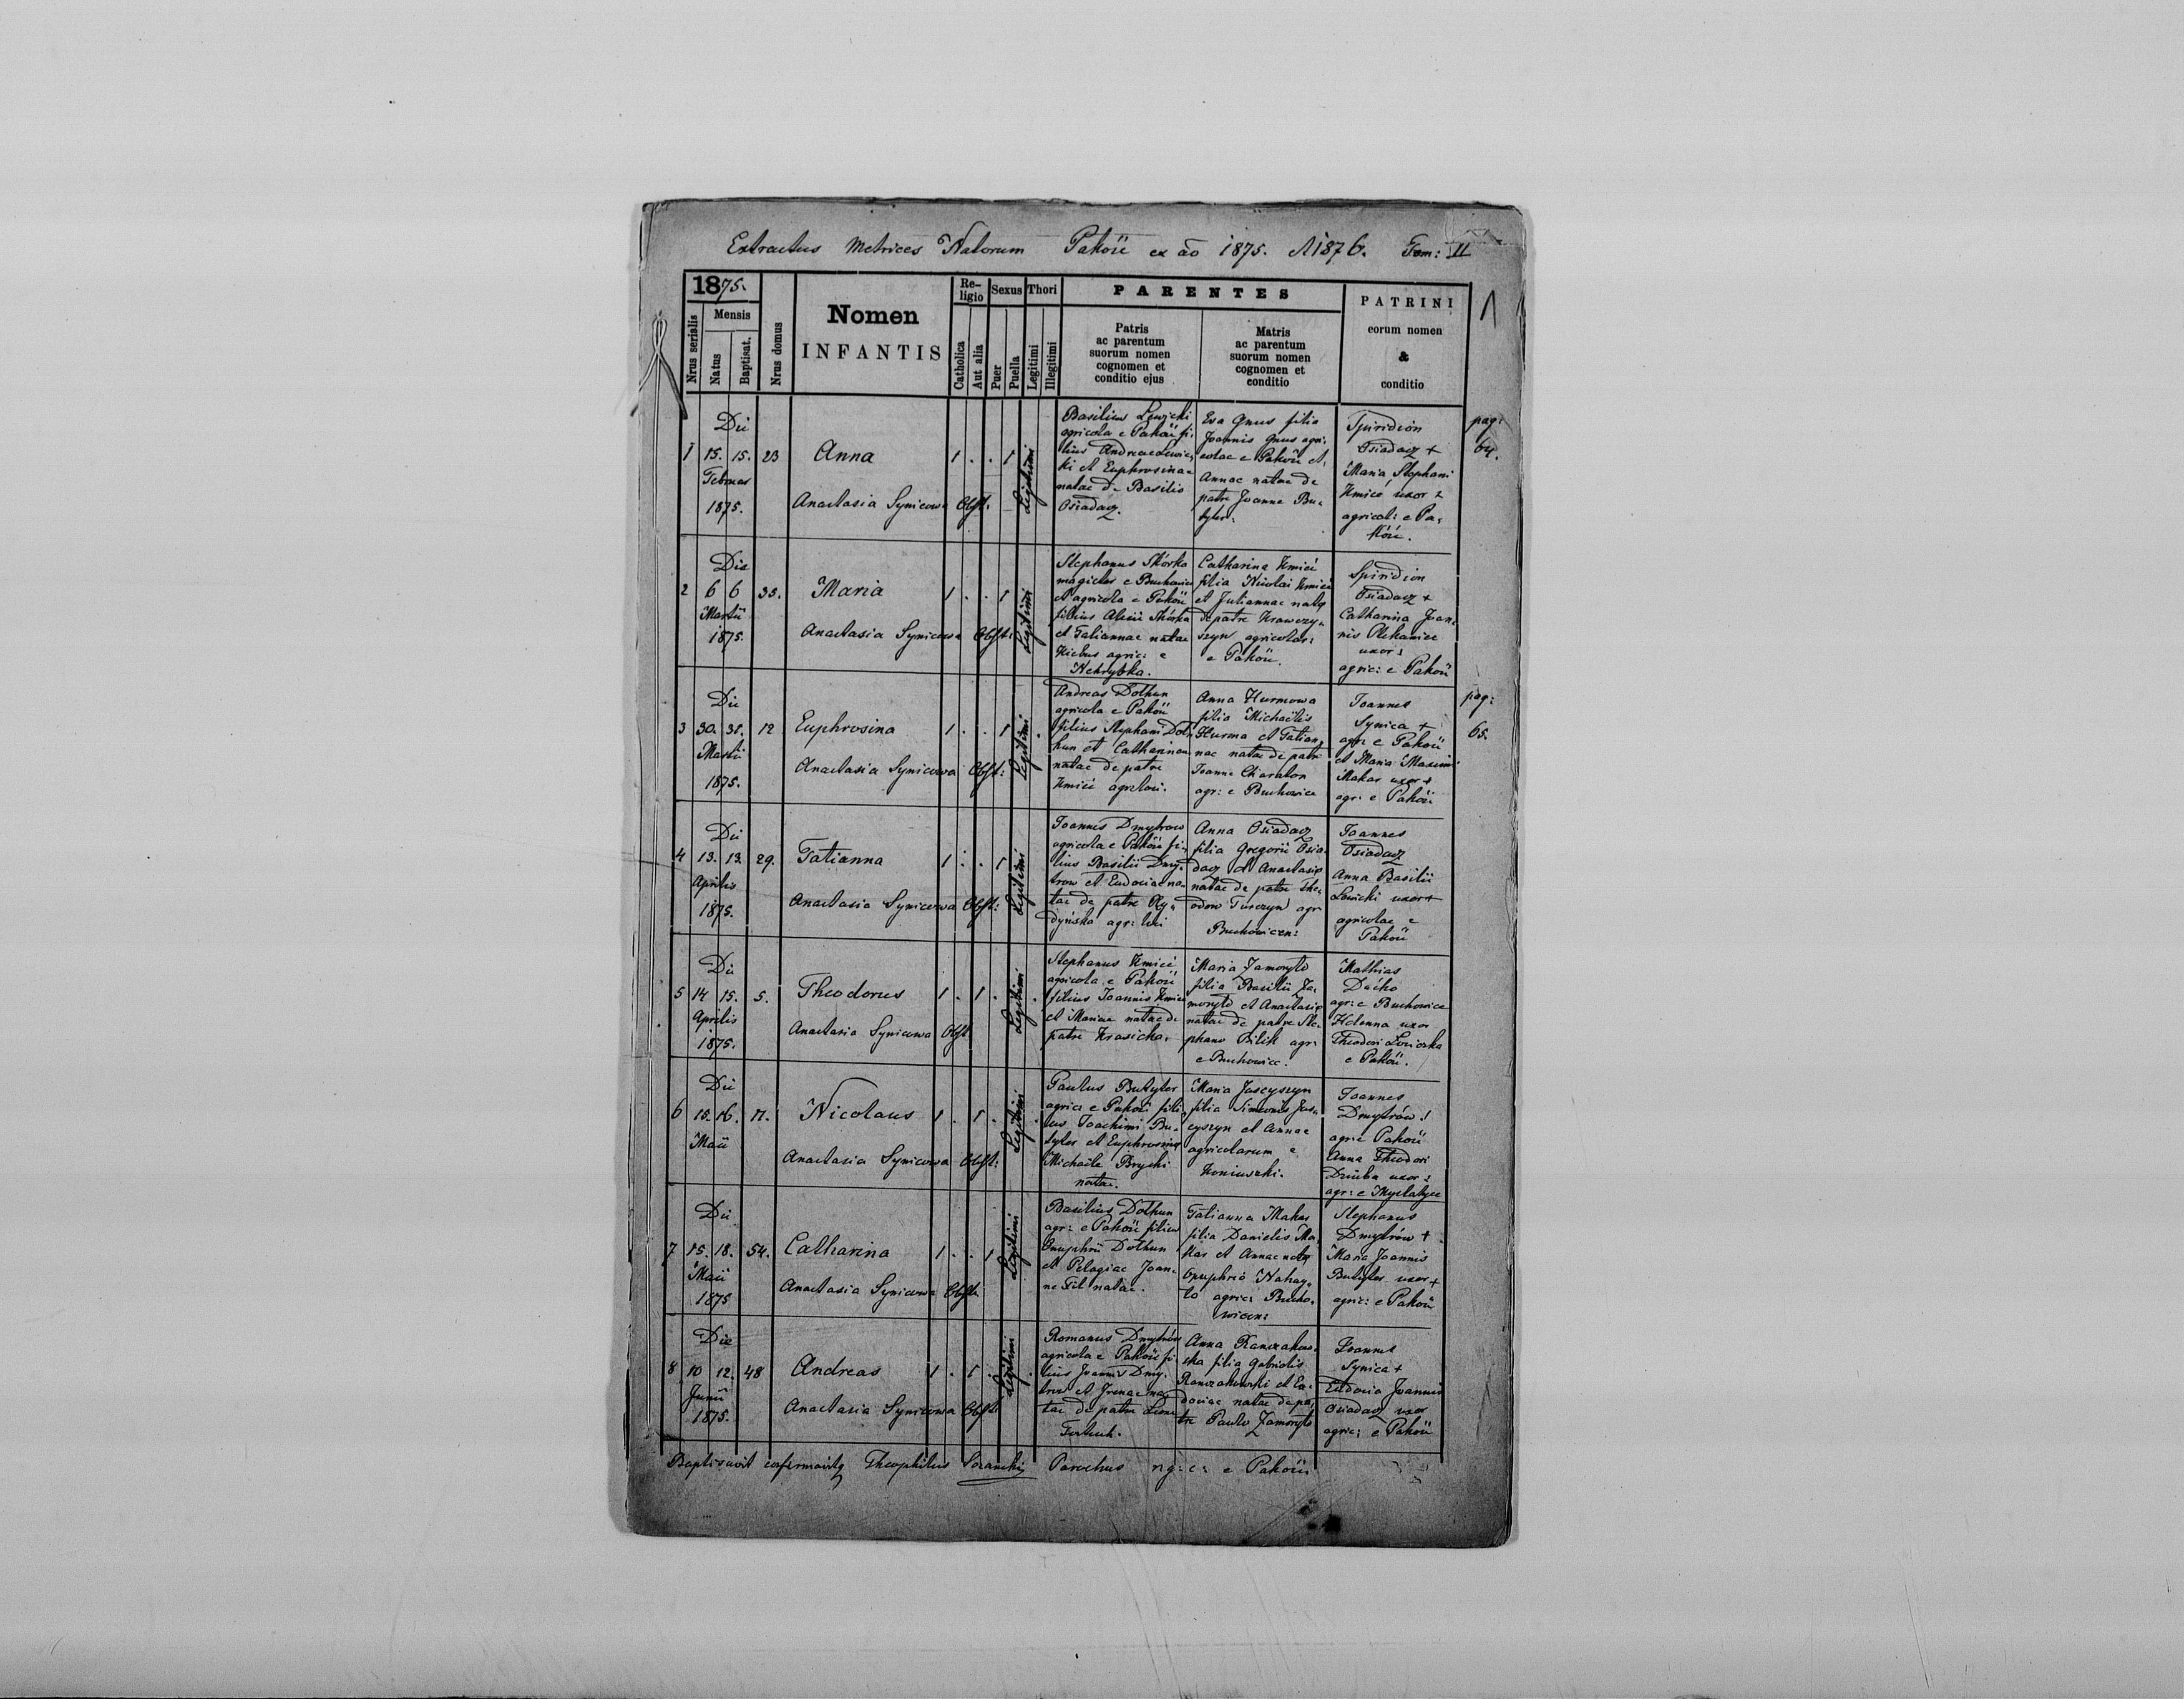 Extractus Metrices Natorum Pakoü ex ao 1875. 1876. Tom: II
1
1875.
Nrus serialis
Mensis
Natus
Baptisat.
Nrus domus
Nomen
INFANTIS
Re-
ligio
Catholica
Aut alia
Sexus
Puer
Puella
Thori
Legitimi
Illegitimi
PARENTES
Patris
ac parentum
suorum nomen
cognomen et
conditio ejus
Matris
ac parentum
suorum nomen
cognomen et
conditio
PATRINI
eorum nomen
&
conditio
pag:
64.
Die
1 15. 15. 23 Anna 1 . . 1 Legitimi
Februar
1875.
Anastasia Synicowa Obst:
Basilius Lewicki
agricola e Pakoü fi-
lius Andreae Lewic-
ki et Euphrosinae
natae de Basilio
Osiadacz.
Eva Gnus filia
Joannis Gnus agri-
colae e Pakoü et
Annae natae de
patre Joanne Bu-
tyler:
Spiridion
Osiadacz +
Maria Stephani
Kmieć uxor
agricol: e Pa-
Die
2 6 6 35. Maria 1 . . 1 Legitimi
Martii
1875.
Anastasia Synicowa Obst:
Stephanus Skórka
magister e Buchowice
et agricola e Pakoü
filius Alexii Skórka
et Tatiannae natae
agric: e
Nehrybka.
Catharina Kmieć
filia Nicolai Kmieć
et Juliannae natae
de patre Krawczy-
szyn agricolar:
e Pakoü.
Spiridion
Osiadacz +
Catharina Joan-
nis
uxor:
agric: e Pakoü
pag:
65.
Die
3 30. 31. 12 Euphrosina 1 . . 1 Legitimi
Martii
1875.
Anastasia Synicowa Obst:
Andreas Dothun
agricola e Pakoü
filius Stephani Dot-
hun et Catharinae
natae de patre
Kmieć
Anna Hurmowa
filia Michaëlis
Hurma et Tatian-
nae natae de patre
Joanne Charaton
agr: e Buchowice
Joannes
Synica +
agr: e Pakoü
et Maria Maximi
Makar uxor +
agr: e Pakoü
Die
4 13. 13. 29. Tatianna 1 . . 1 Legitimi
Aprilis
1875.
Anastasia Synicowa Obst:
Joannes Dmytrow
agricola e Pakoü fi-
lius Basilii Dmy-
trow et Eudociae na-
tae de patre
agr:
Anna Osiadacz
filia Gregorii Osia-
dacz et Anastasiae
natae de patre The-
odoro Turczyn agr
Buchowicen:
Joannes
Osiadacz
Anna Basilii
Lewicki uxor +
agricolae e
Pakoü
Die
5 14 15. 5. Theodorus 1 . 1 . Legitimi
Aprilis
1875.
Anastasia Synicowa Obst
Stephanus Kmieć
agricola e Pakoü
filius Joannis Kmieć
et Mariae natae de
patre Krasicka.
Maria Zamoryto
filia Basilii Za-
moryto et Anastasiae
natae de patre Ste-
phano Bilik agr:
e Buchowice.
Mathias
Dućko
agr: e Buchowice
Helenna uxor
Theodori
e Pakoü.
Die
6 15. 16. 17. Nicolaus 1 . 1 . Legitimi
Maii
Anastasia Synicowa Obst:
Paulus Butyler
agric e Pakoü fili-
us Joachimi Bu-
tyler et Euphrosinae
Michaële Brycki
natae.
Maria Jascyszyn
filia Simeonis Jas-
cyszyn et Annae
agricolarum e
Koniuszki.
Joannes
Dmytrów
agr: e Pakoü
Anna Theodori
Dziuba uxor
agr: e
Die
7 15. 18. 54. Catharina 1 . . 1 Legitimi
Maii
1875
Anastasia Synicowa Obst:
Basilius Dothun
agr: e Pakoü filius
Onuphrii Dothun
et Pelagiae Joan-
ne Fil natae.
Tatianna Makar
filia Danielis Ma-
kar et Annae natae
Onuphrio Nahay-
lo agric: Bucho-
wicen:
Stephanus
Dmytrów +
Maria Joannis
Butyler uxor +
agric: e Pakoü
Die
8 10 12. 48 Andreas 1 . 1 . Legitimi
Junii
1875.
Anastasia Synicowa Obst:
Romanus Dmytrów
agricola e Pakoü fi-
lius Joannis Dmy-
trow et Irenae na-
tae de patre
Anna Kamzakow-
ska filia Gabrielis
et Eu-
dociae natae de pa-
tre Paulo Zamoryto
Joannes
Synica +
Eudocia Joannis
Osiadacz uxor
agric: e Pakoü
Baptisavit confirmavitq Theophilus Parochus r.g.c. e Pakoü